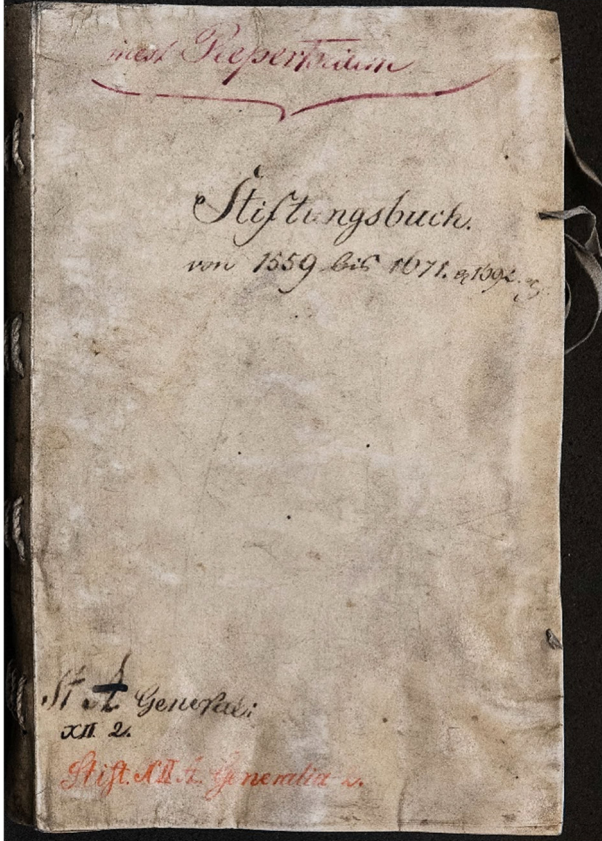 Repertorium
Stiftungsbuch.
von 1559 bis 1671.
St A Generali
XII 2.
Stift. XII A. Generalia 2.